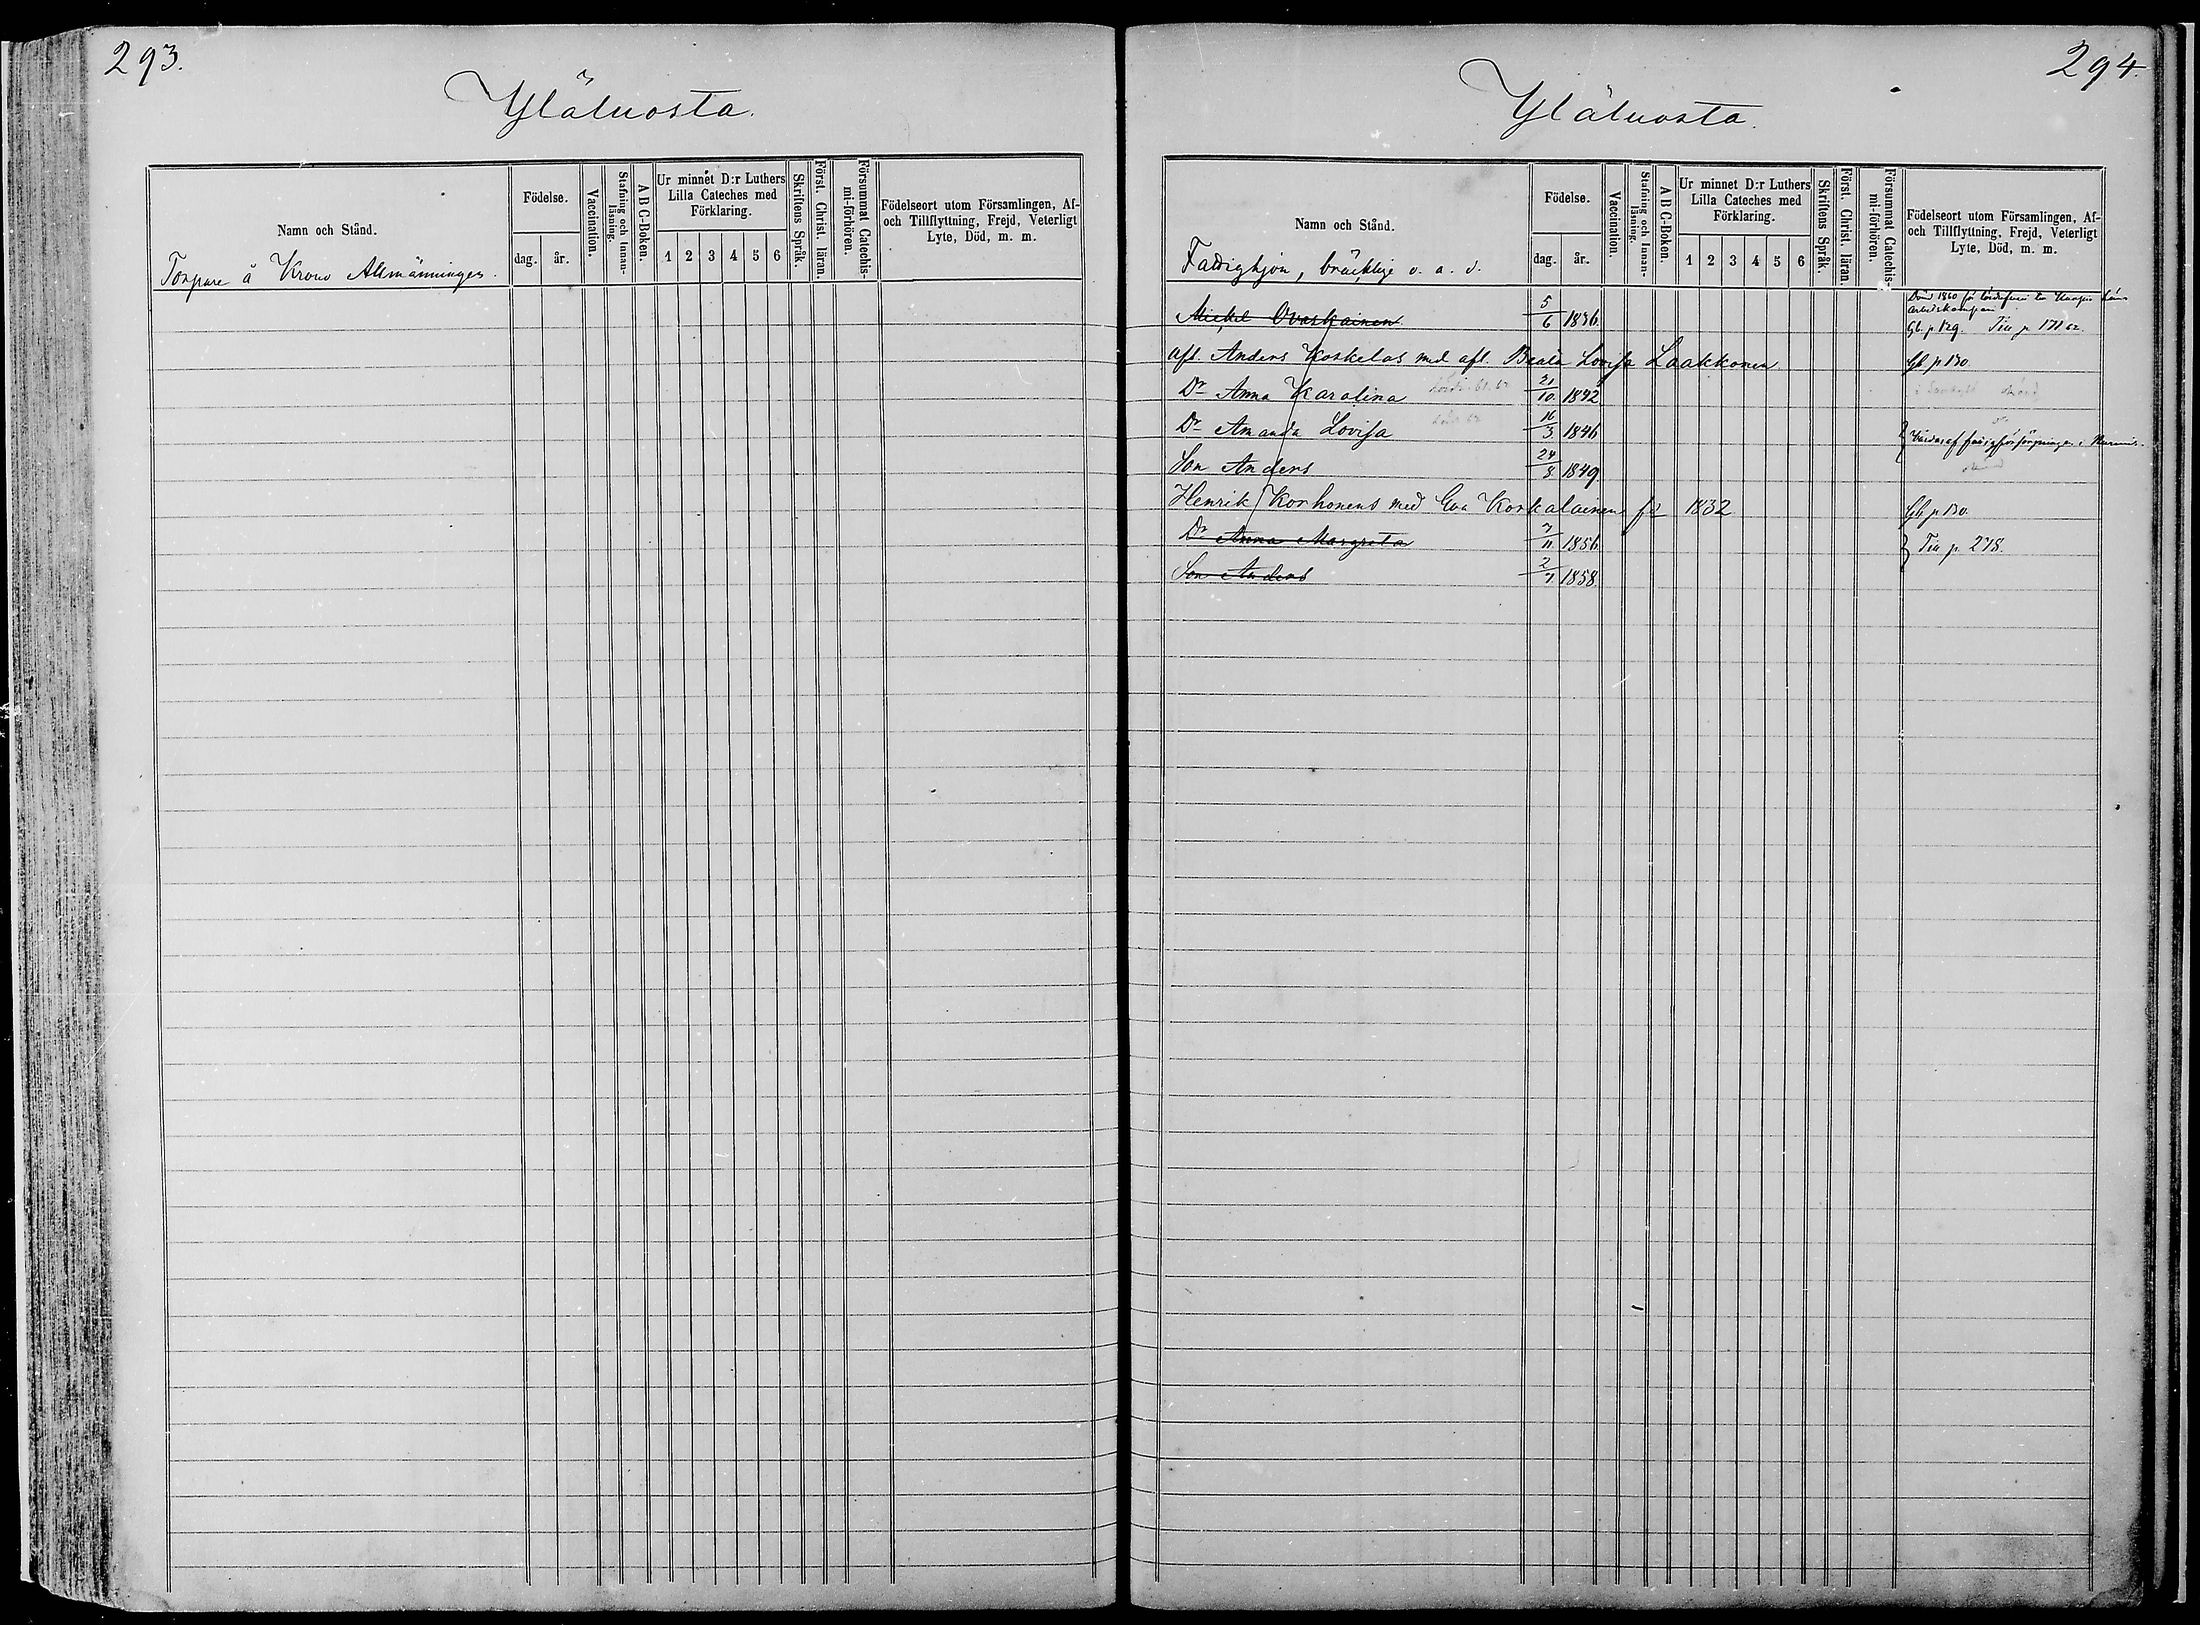 293.
Yläluosta.
Namn och Stånd.
Födelse.
dag.
år.
Vaccination.
Stafning och Innanläsning.
A B C-Boken.
Ur minnet D:r Luthers
Lilla Cateches med
Förklaring.
1 2 3 4 5 6
Skriftens Språk.
Först. Christ. läran.
Försummat Catechismi-förhören.
Födelseort utom Församlingen, Af-
och Tillflyttning, Frejd, Veterligt
Lyte, Död, m. m.
Torpare å Krono Allmänningen.
294.
Yläluosta.
Namn och Stånd.
Födelse.
dag.
år.
Vaccination.
Stafning och Innanläsning.
A B C-Boken.
Ur minnet D:r Luthers
Lilla Cateches med
Förklaring.
1 2 3 4 5 6
Skriftens Språk.
Först. Christ. läran.
Försummat Catechismi-förhören.
Födelseort utom Församlingen, Af-
och Tillflyttning, Frejd, Veterligt
Lyte, Död, m. m.
Fattighjon, bräcklige o. a. d.
Michel Ovaskainen 5/6 1836. Gb. p 129. Till p. 171
afl. Anders Koskelos med afl. Beata Lovisa Laakkonen Gb p 130
Dr Anna Karolina 21/10 1842
Dr Amanda Lovisa 16/3 1846
Son Anders 24/8 1849.
Henrik Korhonens med Eva Korkalainen 1832 Gb p 130.
Dr Anna Margreta 7/11 1856 Till p. 278.
Son Anders 2/7 1858